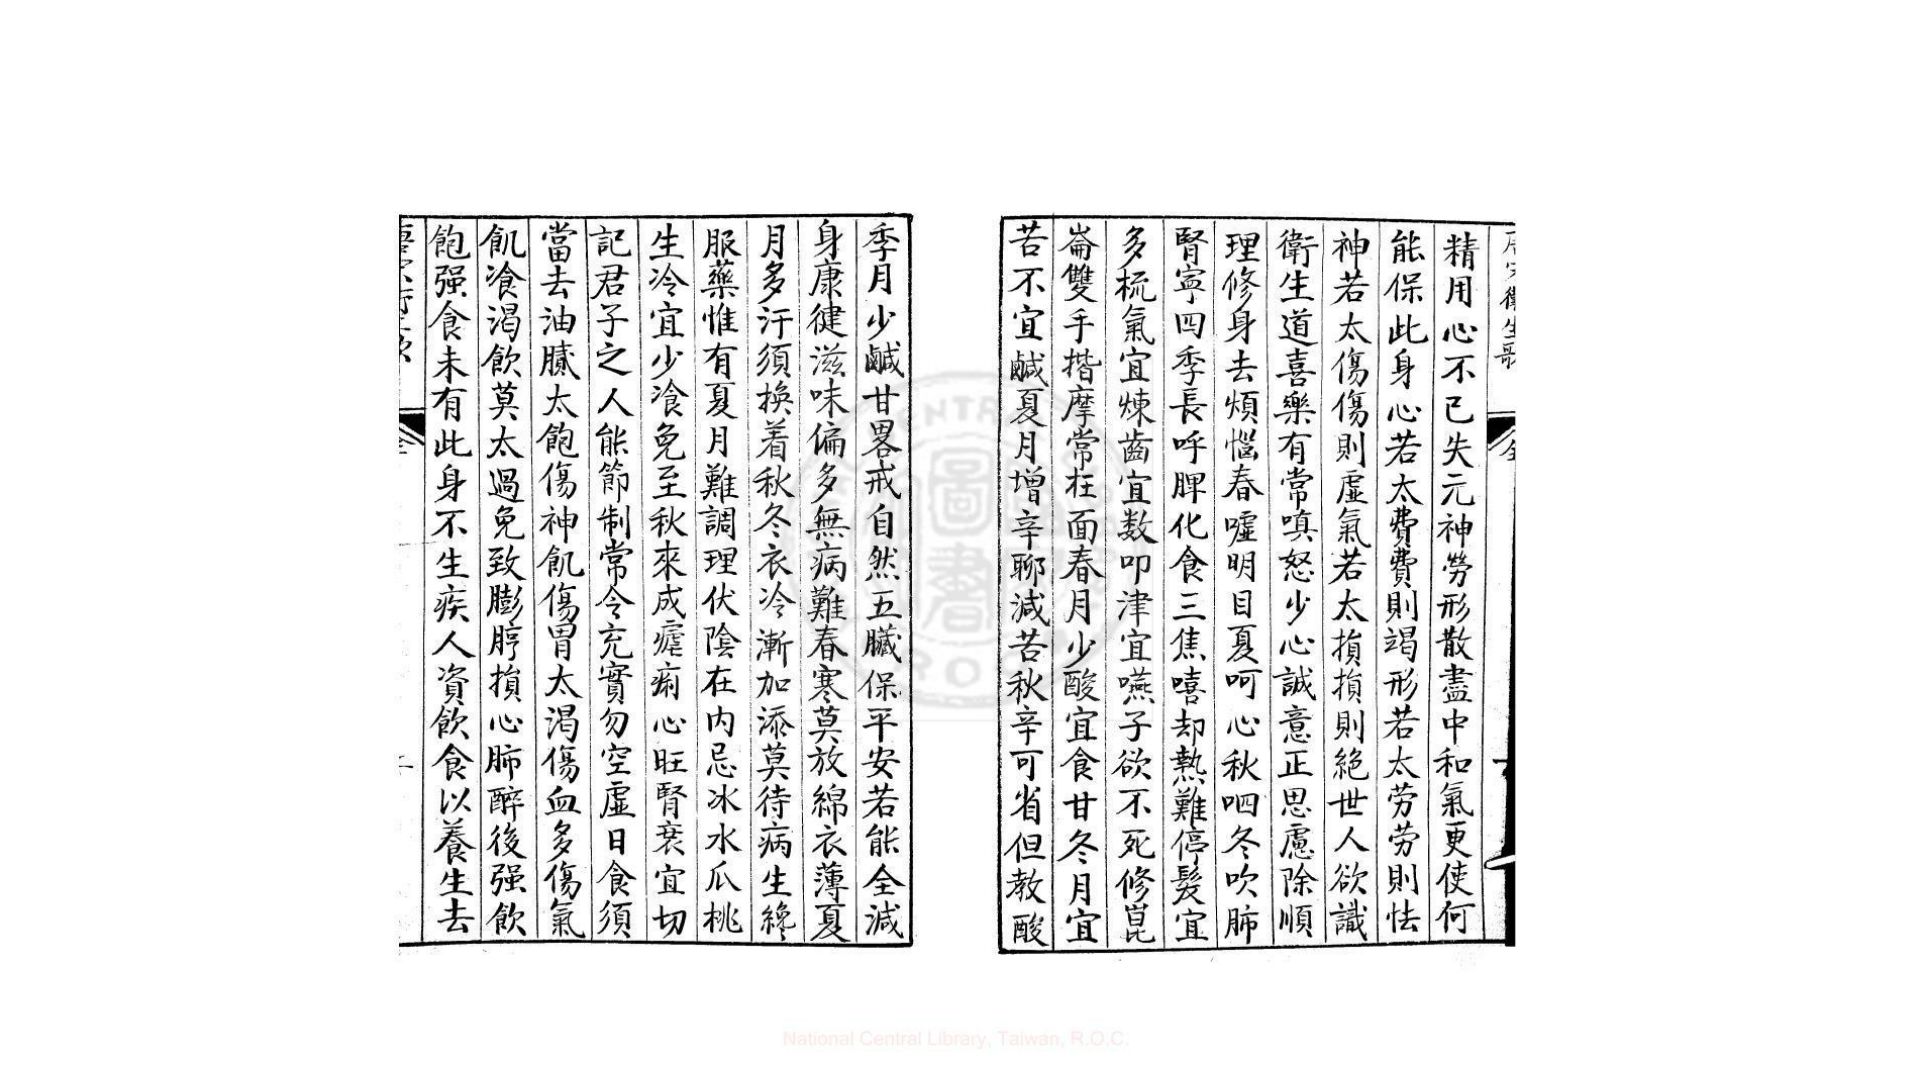 精用心不已失元神勞形散盡中和氣更使何
能保此身心若太費費則竭形若太劳劳則怯
神若太傷傷則虛氣若太損損則絕世人欲識
衛生道喜樂有常嗔怒少心誠意正思慮除順
理修身去煩惱春噓明目夏呵心秋呬冬吹肺
腎寧四季長呼脾化食三焦嘻却熱難停髮宜
多梳氣宜煉齒宜数叩津宜嚥子欲不死修崑
崙雙手揩摩常在面春月少酸宜食甘冬月宜
苦不宜鹹夏月增辛聊減苦秋辛可省但教酸
季月少鹹甘畧戒自然五臟保平安若能全減
身康健滋味偏多無病難春寒莫放綿衣薄夏
月多汗須換着秋冬衣冷漸加添莫待病生纔
服藥惟有夏月難調理伏陰在内忌冰水瓜桃
生冷宜少飡免至秋來成瘧痢心旺腎衰宜切
記君子之人能節制常令充實勿空虛日食須
當去油膩太飽傷神飢傷胃太渴傷血多傷氣
飢飡渴飲莫太過免致膨脝損心肺醉後强飲
飽强食未有此身不生疾人資飲食以養生去
National Central Library, Taiwan, R.O.C.